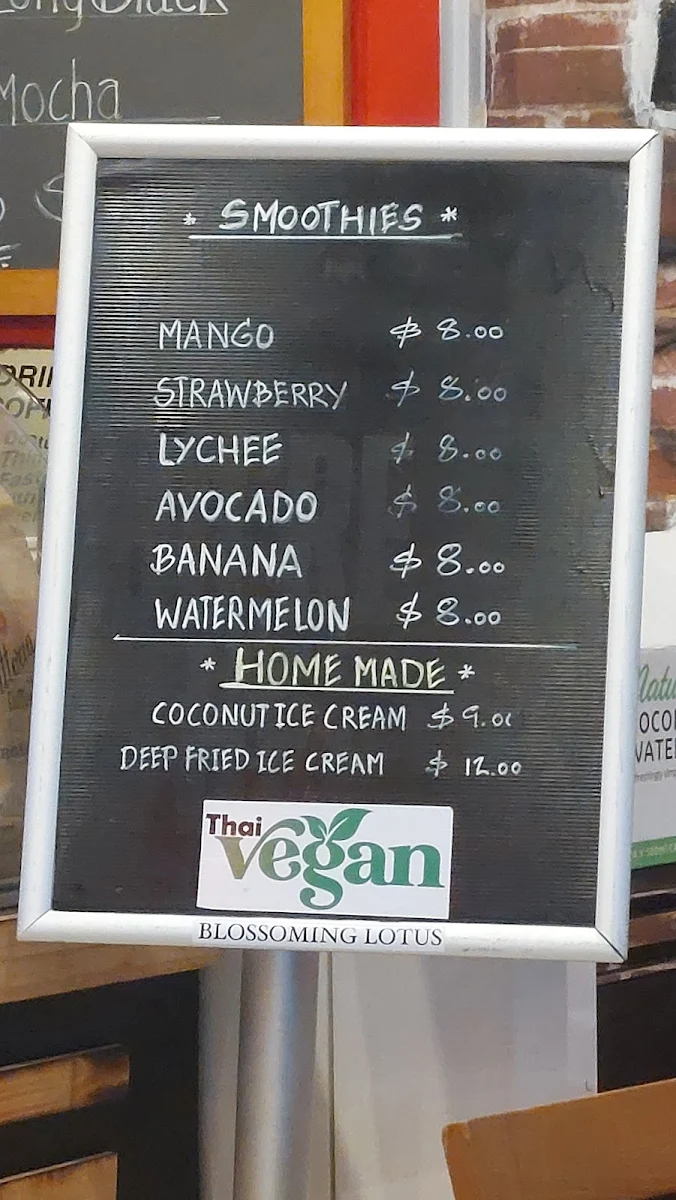 Long Black
Mocha
* SMOOTHIES *
MANGO $ 8.00
STRAWBERRY $ 8.00
LYCHEE $ 8.00
AVOCADO $ 8.00
BANANA $ 8.00
WATERMELON $ 8.00
* HOME MADE *
COCONUT ICE CREAM $ 9.00
DEEP FRIED ICE CREAM $ 12.00
Thai
vegan
BLOSSOMING LOTUS